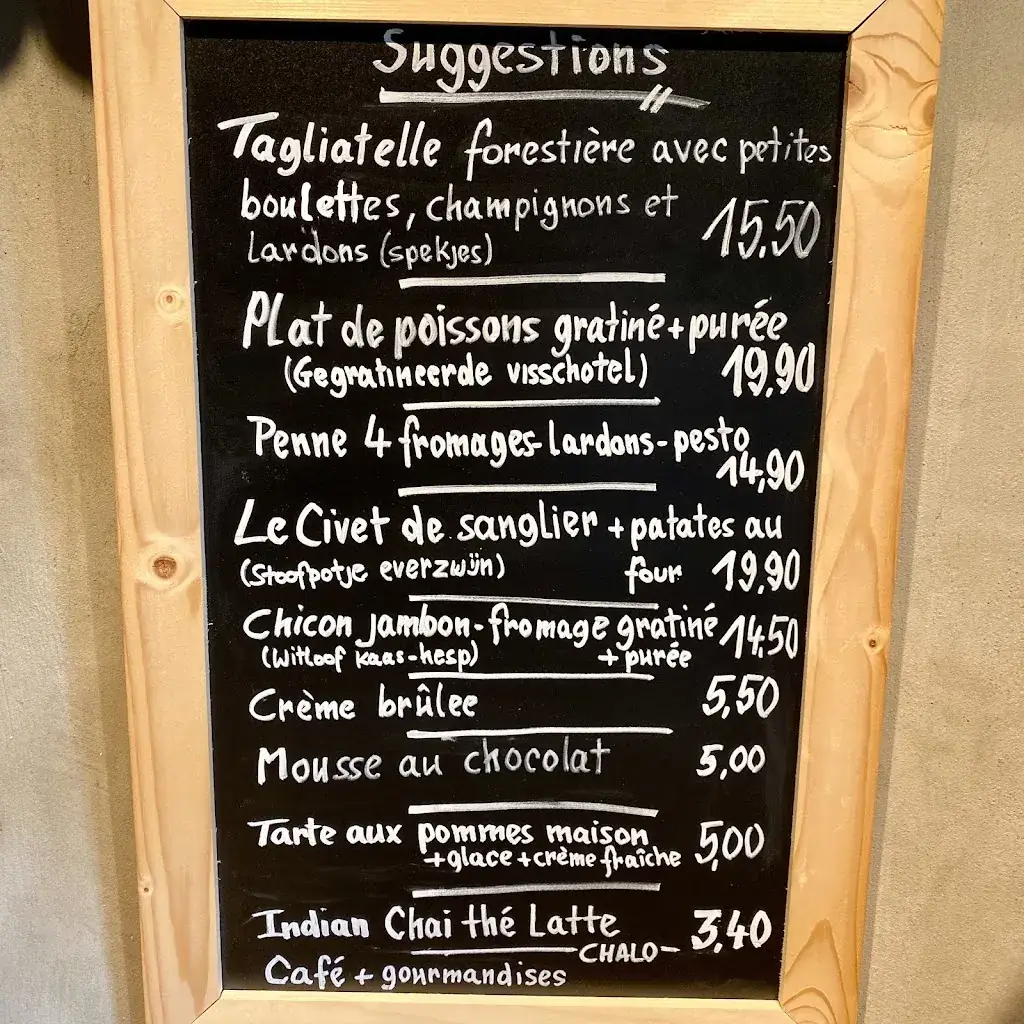 Suggestions
Tagliatelle forestière avec petites
boulettes, champignons et
lardons (spekjes) 15.50
Plat de poissons gratiné + purée
(Gegratineerde visschotel) 19,90
Penne 4 fromages-lardons-pesto
14,90
Le Civet de sanglier + patates au
(Stoofpotje everzwijn) four 19,90
Chicon jambon-fromage gratiné 14.50
(Witloof kaas-hesp) + purée
Crème brûlee 5,50
Mousse au chocolat 5,00
Tarte aux pommes maison 5,00
+ glace + crème fraîche
Indian Chai thé Latte 3.40
CHALO
Café + gourmandises